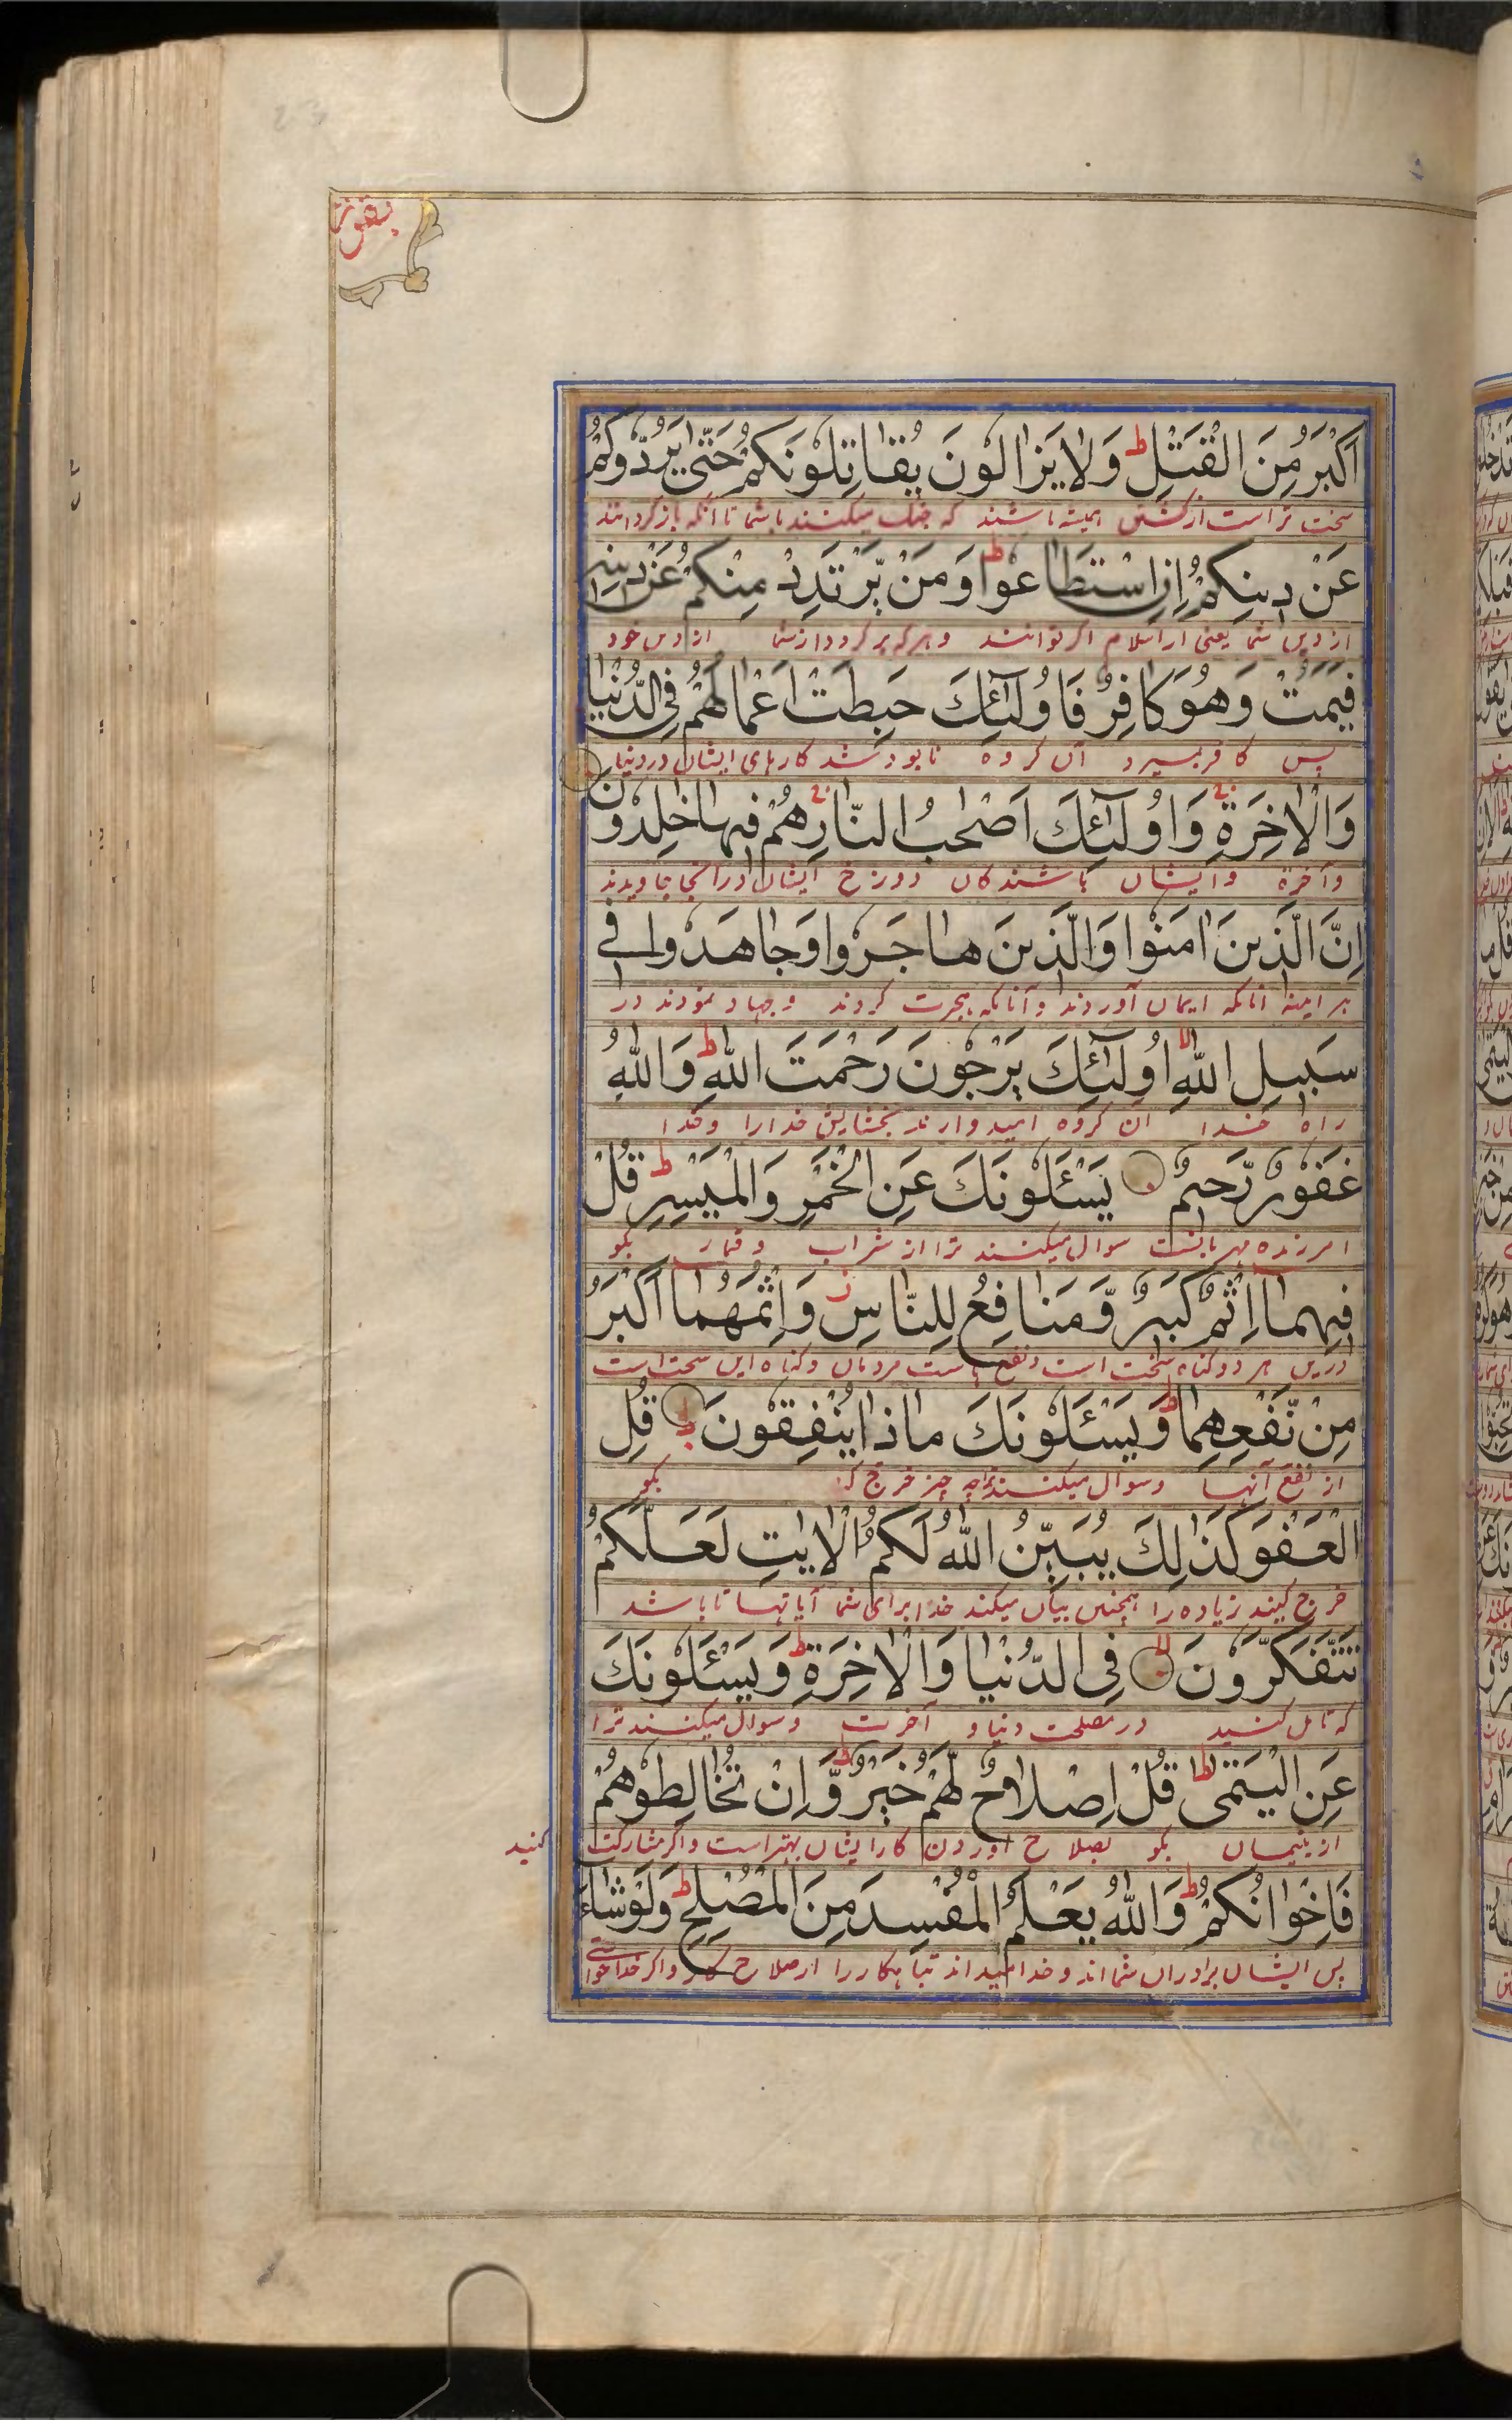 بقرة
اَكْبَرُ مِنَ الْقَتْلِ ط وَلَا يَزَالُوْنَ يُقَاتِلُوْنَكُمْ حَتّٰى يَرُدُّوْكُمْ
سخت تر است از کشتن همیشه باشند که جنک میکنند با شما تا آنکه باز کردانند
عَنْ دِيْنِكُمْ اِنِ اسْتَطَاعُوْا ط وَمَنْ يَّرْتَدِدْ مِنْكُمْ عَنْ دِيْنِهٖ
از دین شما یعنی از اسلام اکر توانند و هر که بر کردد از شما از دین خود
فَيَمُتْ وَهُوَ كَافِرٌ فَاُولٰٓئِكَ حَبِطَتْ اَعْمَالُهُمْ فِى الدُّنْيَا
پس کافر بمیرد آن کروه نابود شد کارهای ایشان در دنیا
وَالْاٰخِرَةِ وَاُولٰٓئِكَ اَصْحٰبُ النَّارِ هُمْ فِيْهَا خٰلِدُوْنَ
و آخرة و ایشان باشندکان دوزخ ایشان در آنجا جاویدند
اِنَّ الَّذِيْنَ اٰمَنُوْا وَالَّذِيْنَ هَاجَرُوْا وَجَاهَدُوْا فِىْ
هر اینه آنانکه ایمان آوردند و آنانکه هجرت کردند و جهاد نمودند در
سَبِيْلِ اللّٰهِ لا اُولٰٓئِكَ يَرْجُوْنَ رَحْمَتَ اللّٰهِ ط وَاللّٰهُ
راه خدا آن کروه امیدوارند بخشایش خدا را و خدا
غَفُوْرٌ رَّحِيْمٌ يَسْئَلُوْنَكَ عَنِ الْخَمْرِ وَالْمَيْسِرِ ط قُلْ
امرزنده مهربانست سوال میکنند ترا از شراب و قمار بکو
فِيْهِمَا اِثْمٌ كَبِيْرٌ وَّمَنَافِعُ لِلنَّاسِ ز وَاِثْمُهُمَا اَكْبَرُ
درین هر دو کناه سخت است و نفع هاست مردمان و کناه این سخت است
مِنْ نَّفْعِهِمَا ط وَيَسْئَلُوْنَكَ مَاذَا يُنْفِقُوْنَ ط قُلِ
از نفع آنها و سوال میکنند ترا چه چیز خرج کنند بکو
الْعَفْوَ كَذٰلِكَ يُبَيِّنُ اللّٰهُ لَكُمُ الْاٰيٰتِ لَعَلَّكُمْ
خرج کنید زیاده را همچنین بیان میکند خدا برای شما آیاتها تا باشد
تَتَفَكَّرُوْنَ لا فِى الدُّنْيَا وَالْاٰخِرَةِ ط وَيَسْئَلُوْنَكَ
که تامل کنید در مصلحت دنیا و آخرت و سوال میکنند ترا
عَنِ الْيَتٰمٰى ط قُلْ اِصْلَاحٌ لَّهُمْ خَيْرٌ ط وَّاِنْ تُخَالِطُوْهُمْ
از یتیمان بکو بصلاح آوردن کار ایشان بهتر است و اکر مشارکت کنید
فَاِخْوَانُكُمْ ط وَاللّٰهُ يَعْلَمُ الْمُفْسِدَ مِنَ الْمُصْلِحِ ط وَلَوْ شَاءَ
پس ایشان برادران شما اند و خدا میداند تباهکار را از صلاح کار و اکر خدا خواستی